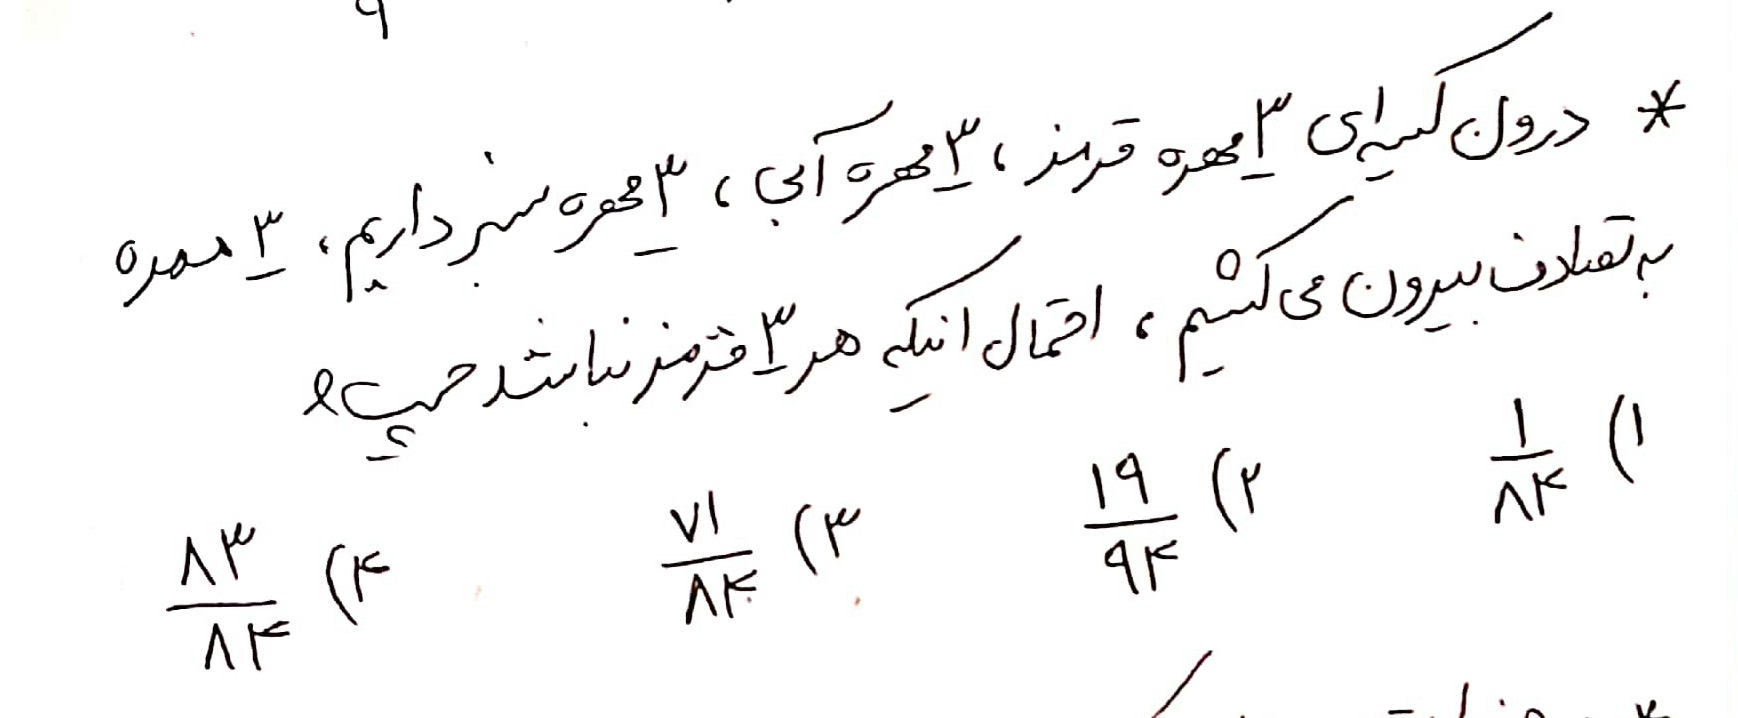 ۹
* درون کیسه‌ای ۳ مهره قرمز، ۳ مهره آبی، ۳ مهره سبز داریم، ۳ مهره
به تصادف بیرون می‌کشیم، احتمال اینکه هر ۳ قرمز نباشد چیست؟
۱) ۱/۸۴ ۲) ۱۹/۹۴ ۳) ۷۱/۸۴ ۴) ۸۳/۸۴